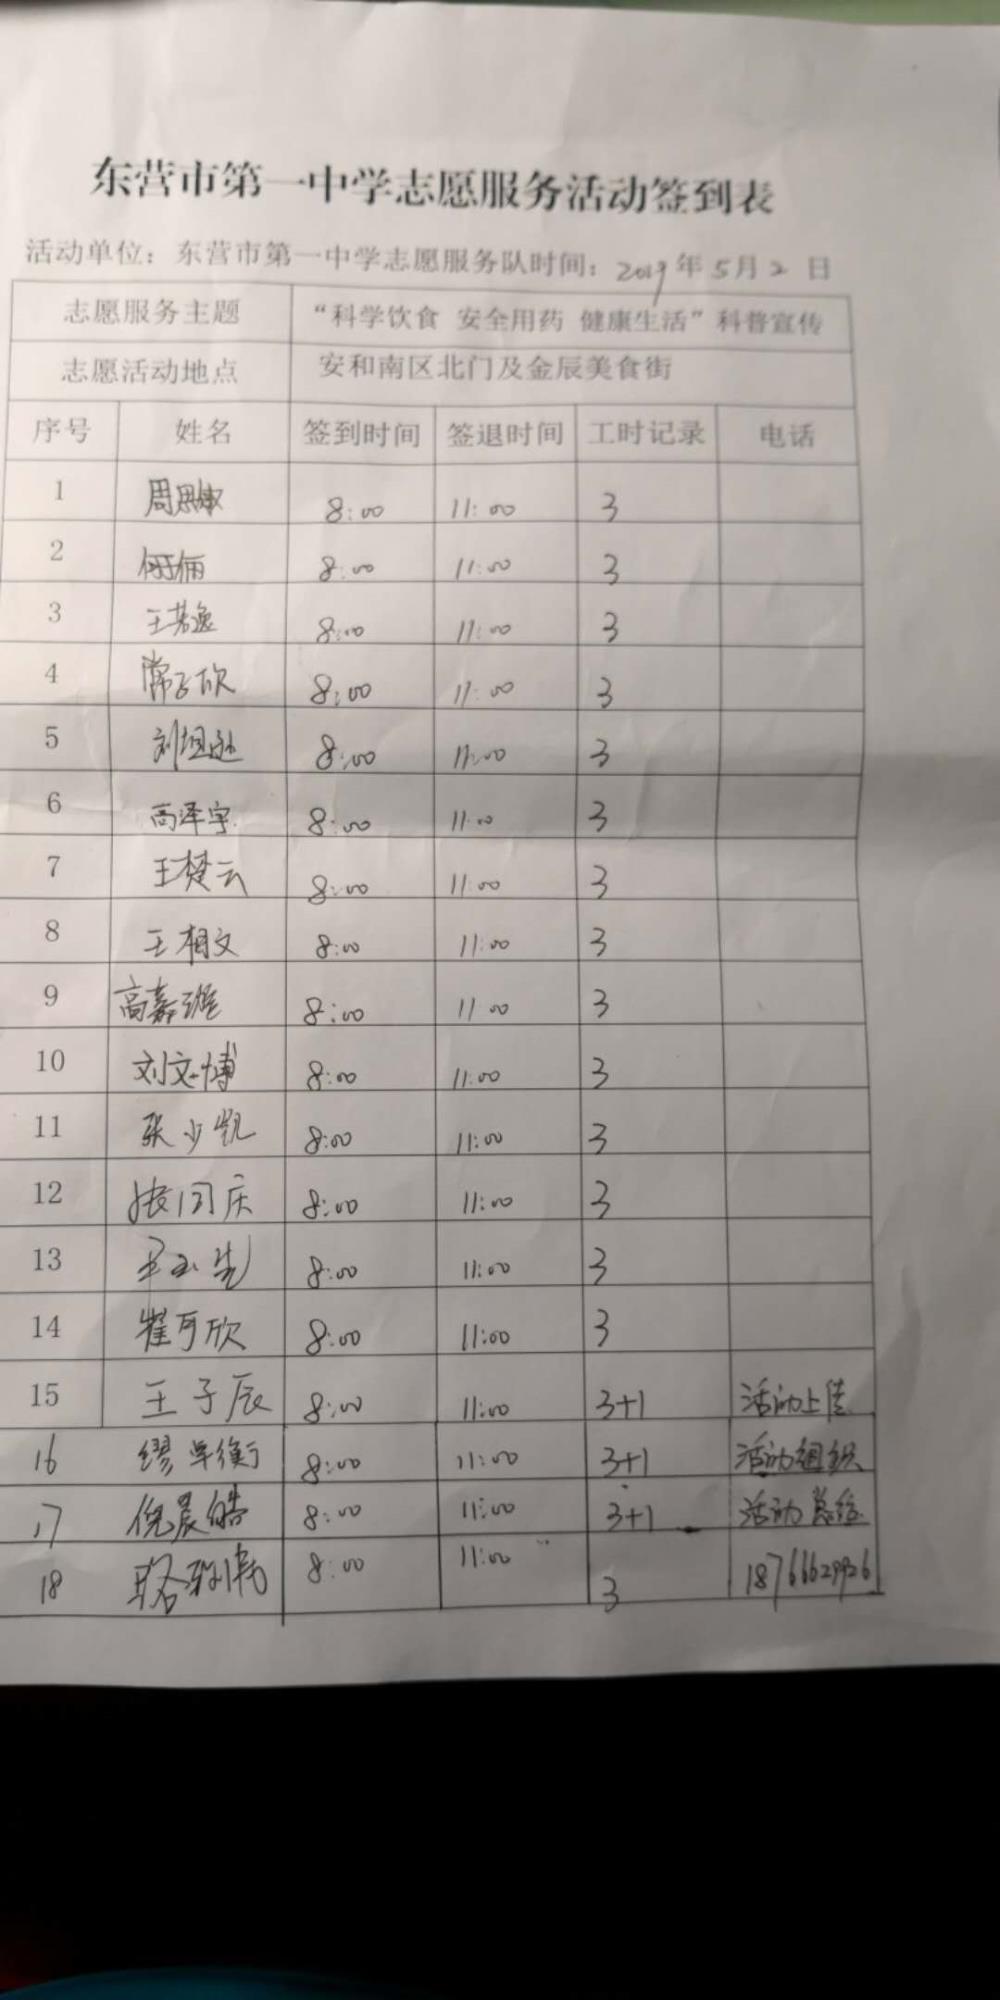 东营市第一中学志愿服务活动签到表
活动单位：东营市第一中学志愿服务队时间：2019年5月2日
志愿服务主题 “科学饮食 安全用药 健康生活”科普宣传
志愿活动地点 安和南区北门及金辰美食街
序号 姓名 签到时间 签退时间 工时记录 电话
1 周思 8:00 11:00 3
2 俪 8:00 11:00 3
3 王若逸 8:00 11:00 3
4 常子欣 8:00 11:00 3
5 刘坦 8:00 11:00 3
6 高泽宇 8:00 11:00 3
7 王楚云 8:00 11:00 3
8 王相文 8:00 11:00 3
9 高嘉 8:00 11:00 3
10 刘文博 8:00 11:00 3
11 张少凯 8:00 11:00 3
12 张同庆 8:00 11:00 3
13 8:00 11:00 3
14 崔可欣 8:00 11:00 3
15 王子辰 8:00 11:00 3+1 活动上传
16 缪学衡 8:00 11:00 3+1 活动组织
17 倪晨皓 8:00 11:00 3+1 活动总结
18 骆 8:00 11:00 3 18766629926